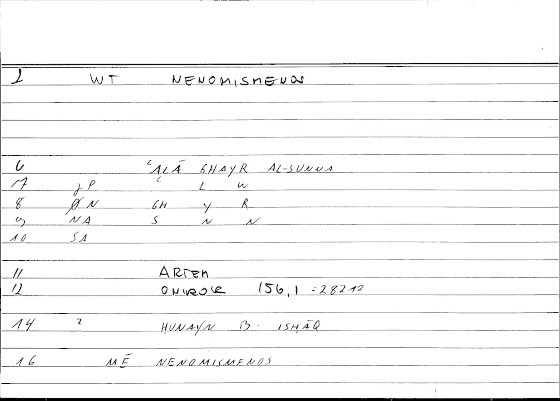 1 WT NENOMISMENOS
6 ʿALĀ GHAYR AL-SUNNA
7 JP ʿ L W
8 ØN GH Y R
9 NA S N N
10 SA
11 ARTEM
12 ONIROCR 156,1 = 28212
14 ? HUNAYN B. ISHĀQ
16 MĒ NENOMISMENOS